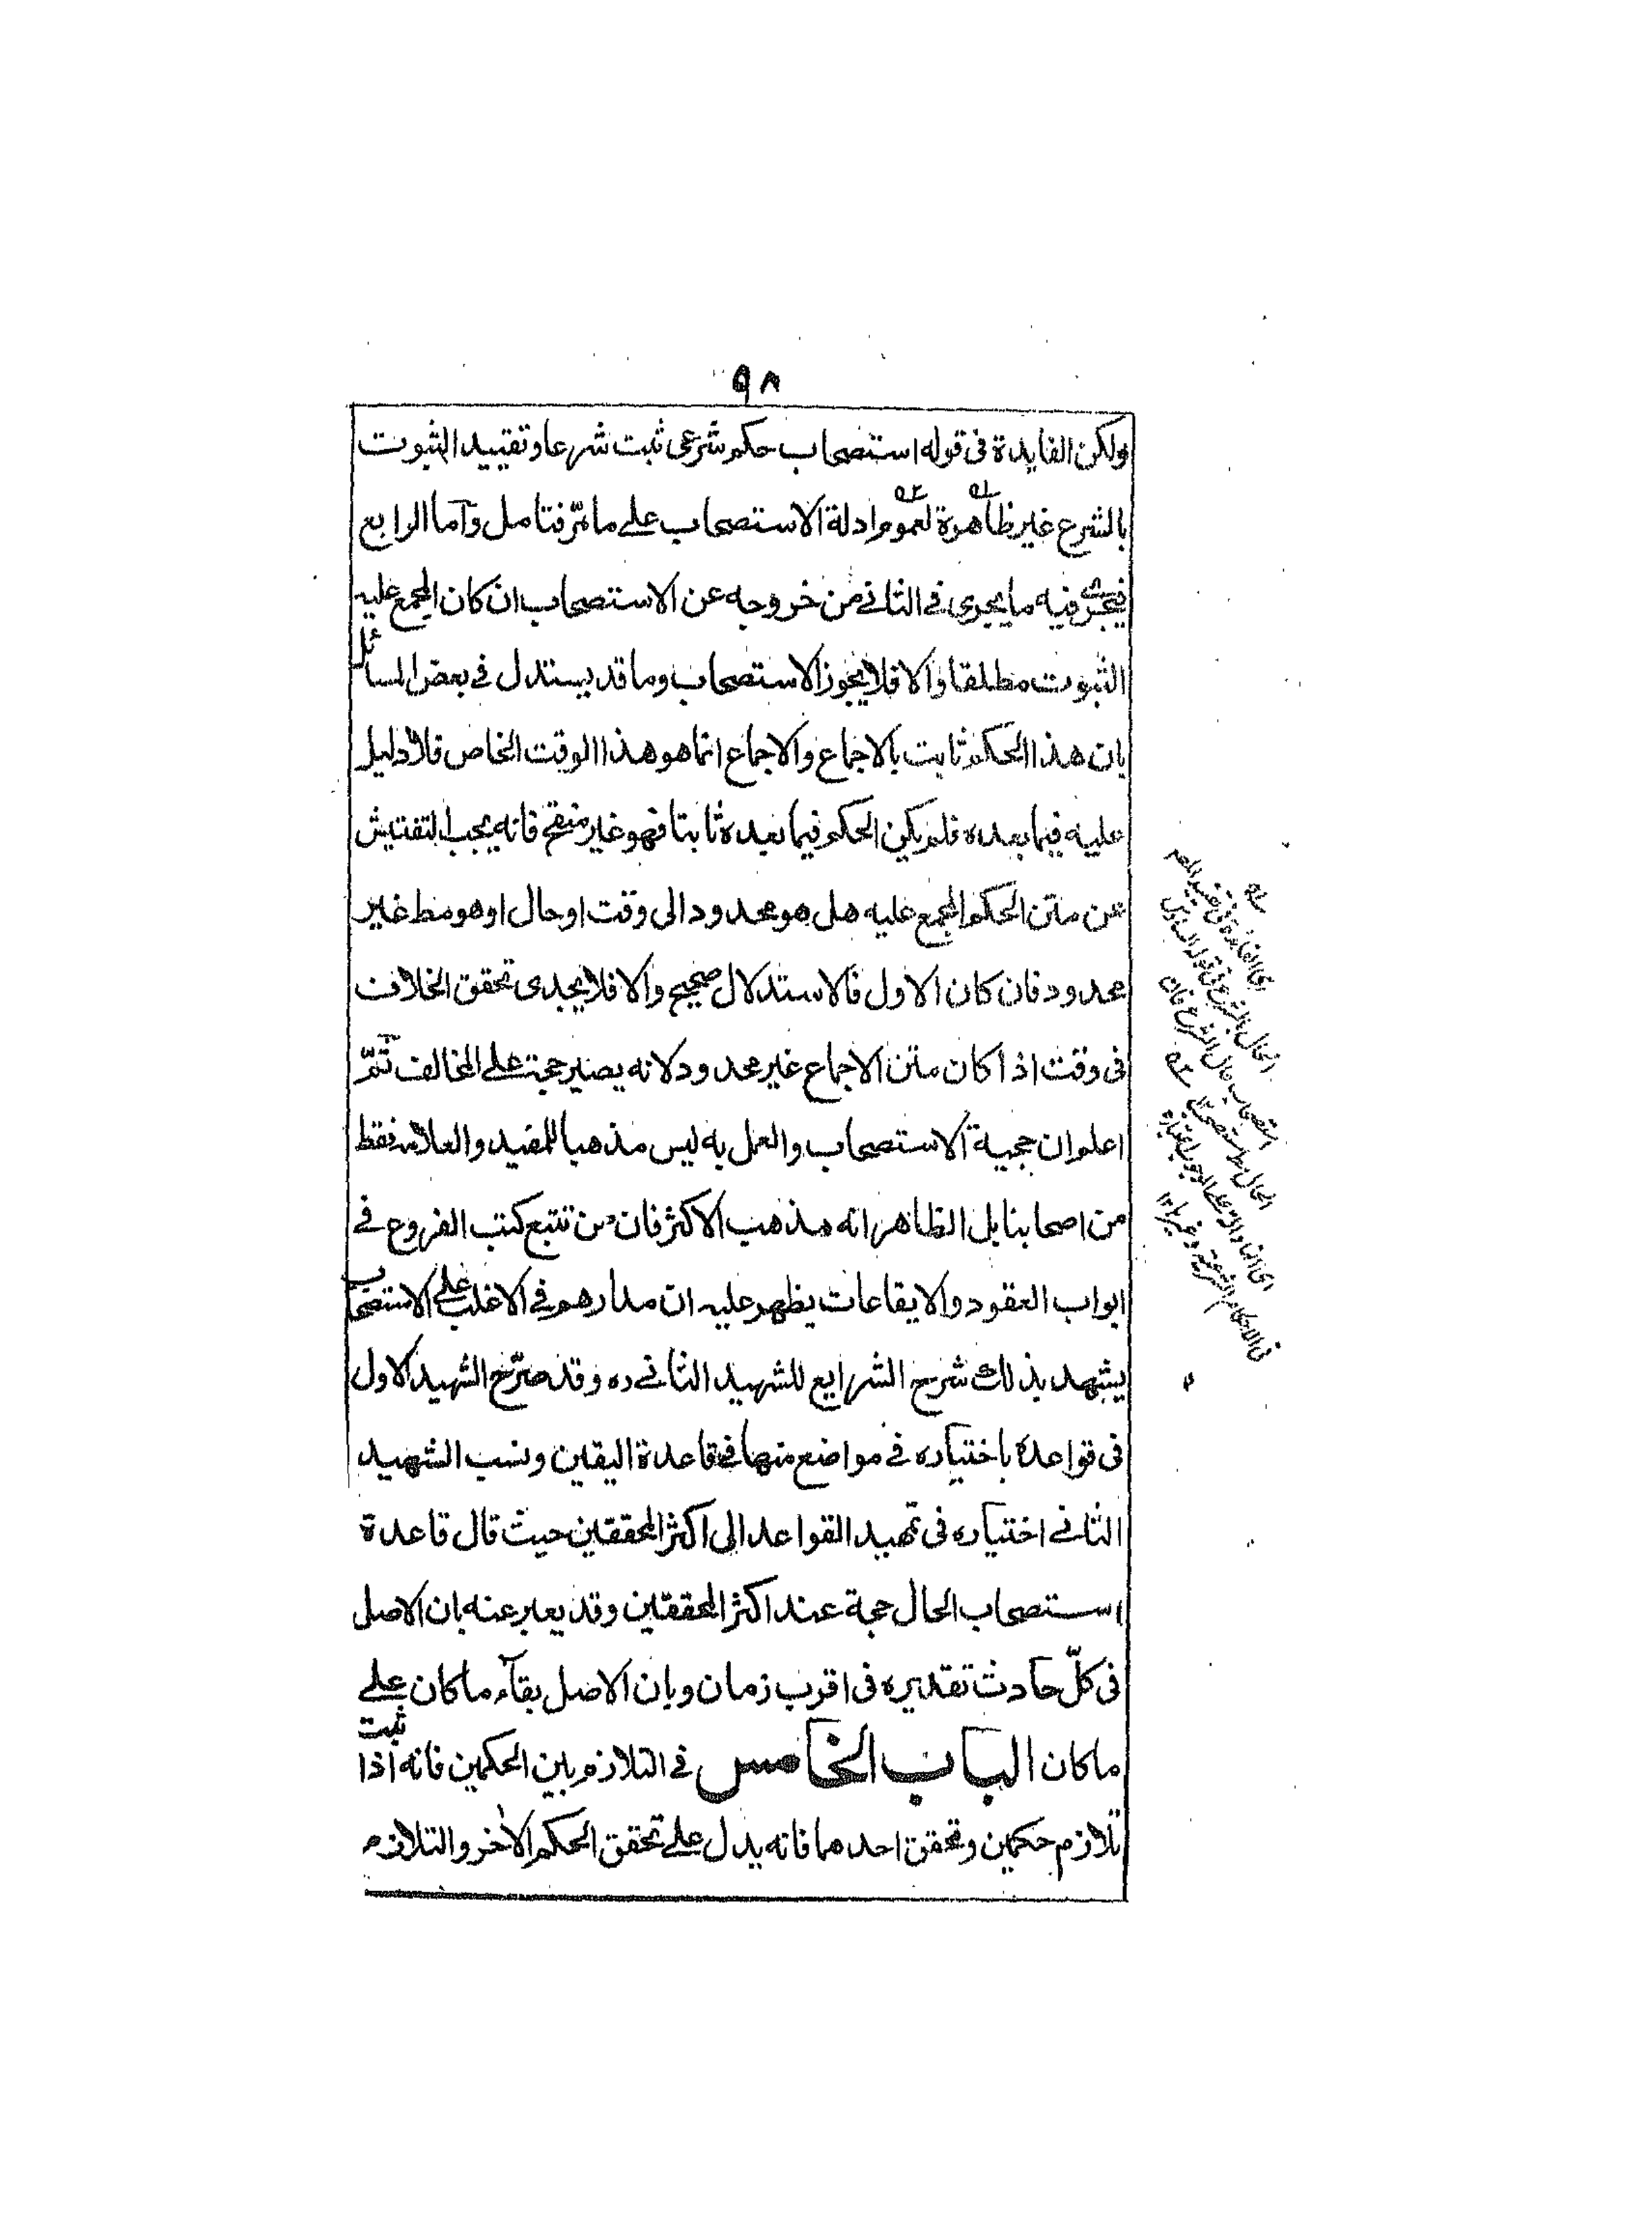 ٩٨
ولكن الفايدة فى قوله استصحاب حكم شرعى ثبت شرعا وتقييد الثبوت
بالشرع غير ظاهرة لعموم ادلة الاستصحاب على ما مرّ فتامل وآما الرابع
فيجرى فيه ما يجرى فى الثانى من خروجه عن الاستصحاب ان كان المجمع عليه
الثبوت مطلقا والا فلا يجوز الاستصحاب وما قد يستدل فى بعض المسائل
بان هذا الحكم ثابت بالاجماع والاجماع انما هو هذا الوقت الخاص فلا دليل
عليه فيما بعده فلم يكن الحكم فيما بعده ثابتا فهو غير منقح فانه يجب التفتيش
عن متن الحكم المجمع عليه هل هو محدود الى وقت او حال او هو مط غير
محدود فان كان الاول فالاستدلال صحيح والا فلا يجدى تحقق الخلاف
فى وقت اذا كان متن الاجماع غير محدود لانه يصير حجة على المخالف ثمّ
اعلم ان حجية الاستصحاب والعمل به ليس مذهبا للمفيد والعلامة فقط
من اصحابنا بل الظاهر انه مذهب الاكثر فان من تتبع كتب الفروع فى
ابواب العقود والايقاعات يظهر عليه ان مدارهم فى الاغلب على الاستصحاب
يشهد بذلك شرح الشرايع للشهيد الثانى ره وقد صرّح الشهيد الاول
فى قواعده باختياره فى مواضع منها فى قاعدة اليقين ونسب الشهيد
الثانى اختياره فى تمهيد القواعد الى اكثر المحققين حيث قال قاعدة
استصحاب الحال حجة عند اكثر المحققين وقد يعبر عنه بان الاصل
فى كلّ حادث تقديره فى اقرب زمان وبان الاصل بقآء ما كان على
ما كان الباب الخامس فى التلازم بين الحكمين فانه اذا ثبت
تلازم حكمين وتحقق احدهما فانه يدل على تحقق الحكم الآخر والتلازم